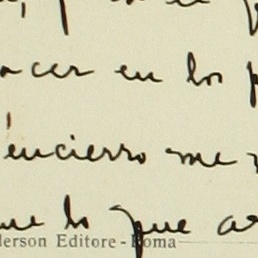 acer en los
encierro me
me lo que
derson Editore - Roma